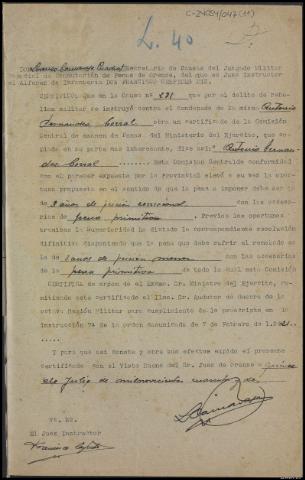 C-24054/047(11)
L. 40
Secretario de Causas del Juzgado Militar
de Penas de Orense, del que es Juez Instructor
el Alferez de Infanteria DON FRANCISCO
CERTIFICO: Que en la Causa nº 281 que por el delito de rebe-
lion militar se instruyó contra el Condenado en la misma Antonio
Fernandez Corral obra un certificado de la Comisión
Central de examen de Penas del Ministerio del Ejército, que copiado
en su parte mas interesante, dice así: " Antonio Fernan-
dez Corral . Esta Comisión Central de conformidad
con el parecer expuesto por la Provincial elevó a su vez la oportuna
propuesta en el sentido de que la pena a imponer debe ser la
de 3 años de prisión correccional con las acceso-
rias de pena primitiva . Previos los oportunos
tramites la Superioridad ha dictado la correspondiente resolución
difinitiva disponiendo que la pena que debe sufrir el penado es
la de 3 años de prisión menor con las accesorias
de la pena primitiva de todo lo cual esta Comisión
CERTIFICA de orden del Excmo. Sr. Ministro del Ejército, re-
mitiendo este certificado al Ilmo. Sr. Auditor de Guerra de la
octava Región Militar para cumplimiento de lo prescripto en la
instrucción 7ª de la orden comunicada de 7 de Febrero de 194
Y para que así conste y obre sus efectos expido el presente
certificado con el Visto Bueno del Sr. Juez de Orense a quince
de Julio de mil novecientos cuarenta y
Vº. Bº.
El Juez Instructor